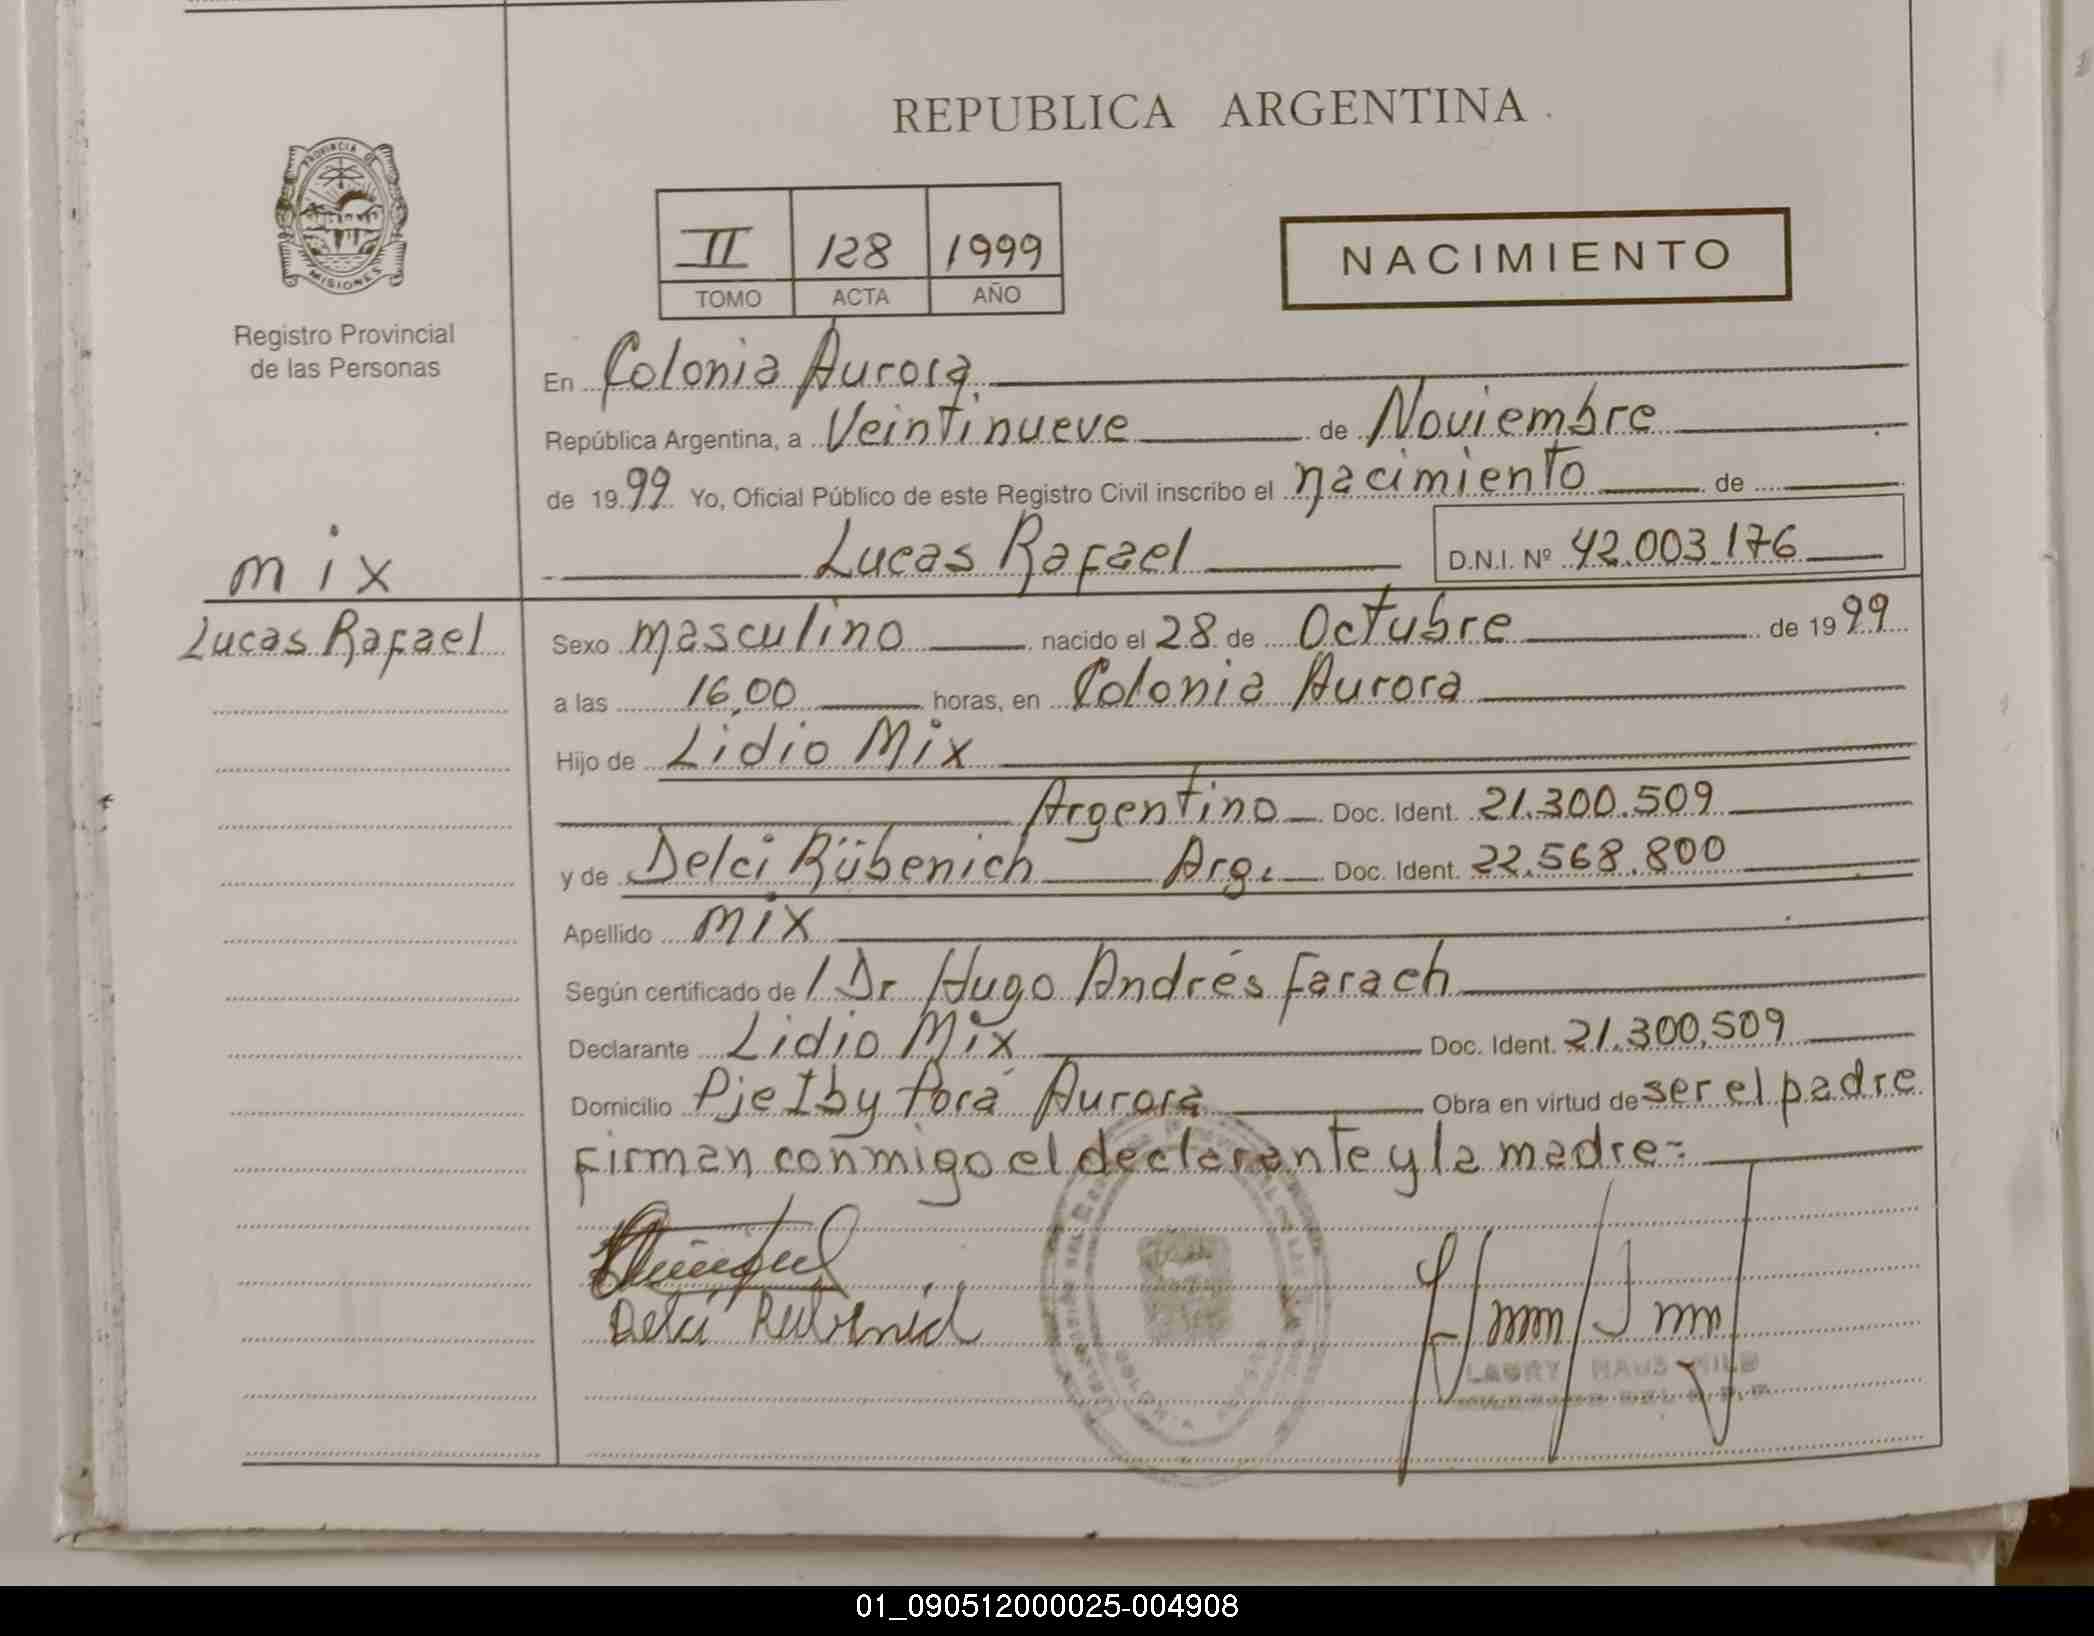 REPUBLICA ARGENTINA
PROVINCIA DE MISIONES
II 128 1999
TOMO ACTA AÑO
NACIMIENTO
Registro Provincial
de las Personas
En Colonia Aurora
República Argentina, a Veintinueve de Noviembre
de 1999 Yo, Oficial Público de este Registro Civil inscribo el nacimiento de
Lucas Rafael D.N.I. Nº 42.003.176
mix
Lucas Rafael
Sexo masculino nacido el 28 de Octubre de 1999
a las 16,00 horas, en Colonia Aurora
Hijo de Lidio Mix
Argentino Doc. Ident. 21.300.509
y de Delci Rübenich Arg. Doc. Ident. 22.568.800
Apellido mix
Según certificado de / Dr Hugo Andrés Farach
Declarante Lidio Mix Doc. Ident. 21.300,509
Domicilio Pje Iby Porá Aurora Obra en virtud de ser el padre
Firman conmigo el declarante y la madre=
Delci
01_090512000025-004908